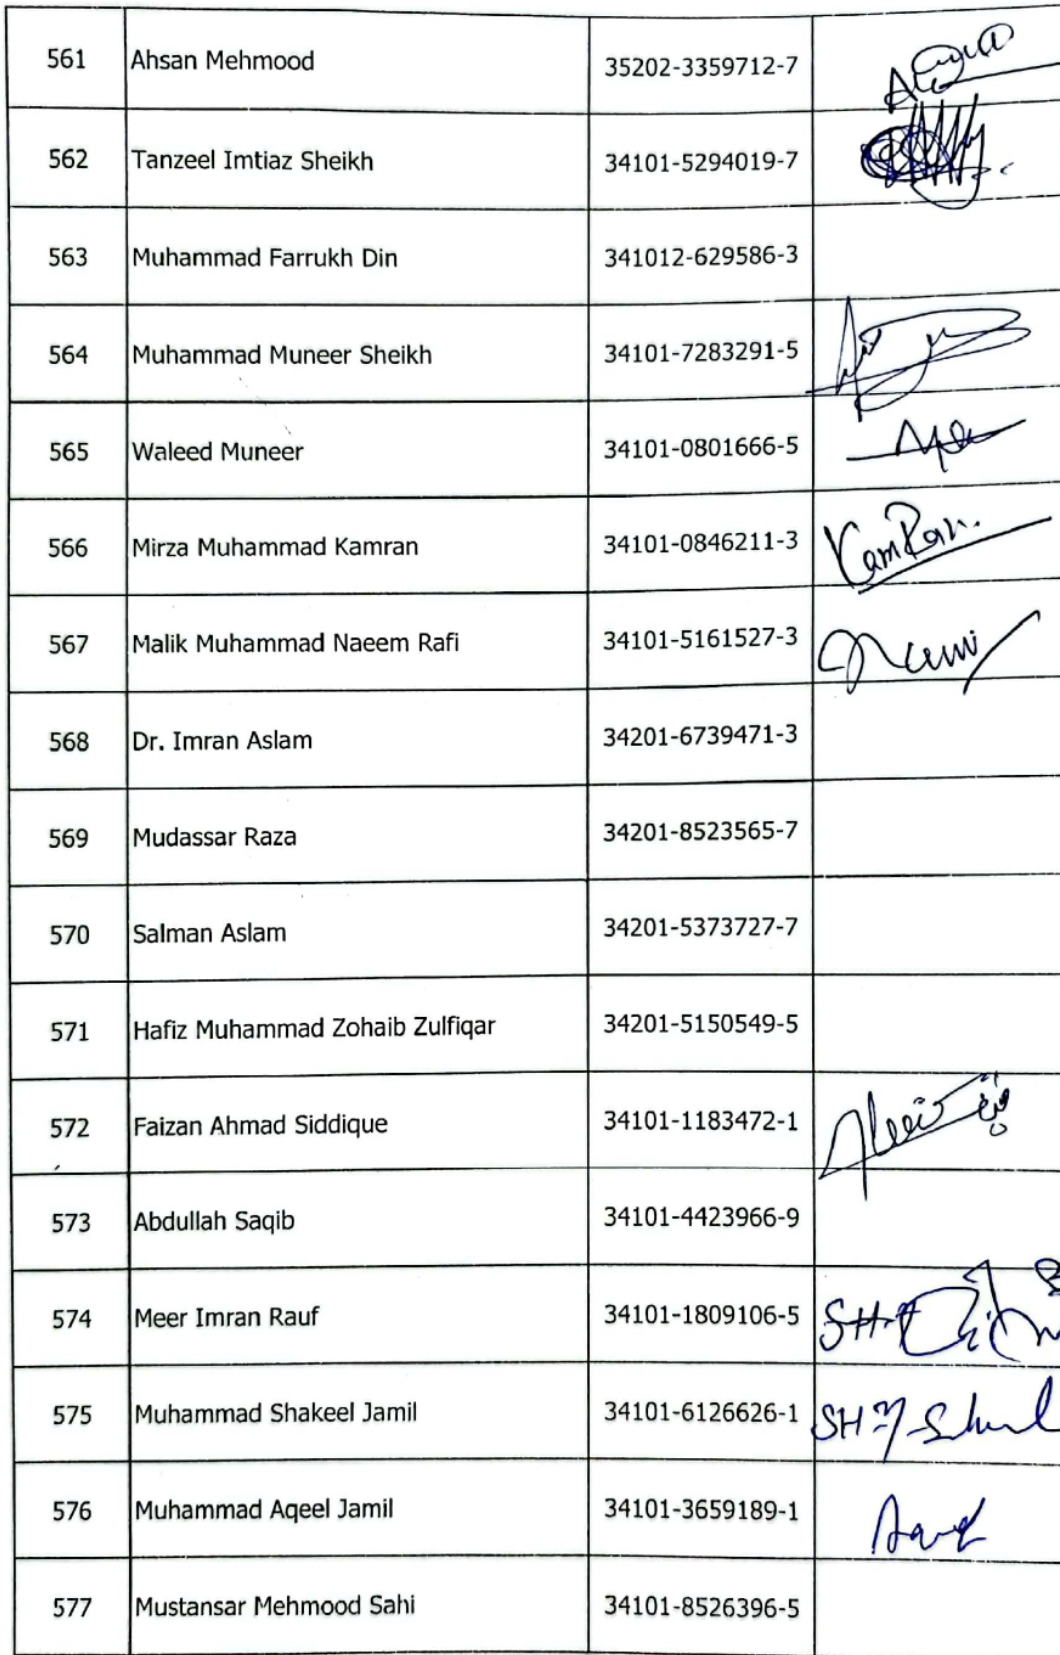 561 Ahsan Mehmood 35202-3359712-7
562 Tanzeel Imtiaz Sheikh 34101-5294019-7
563 Muhammad Farrukh Din 341012-629586-3
564 Muhammad Muneer Sheikh 34101-7283291-5
565 Waleed Muneer 34101-0801666-5
566 Mirza Muhammad Kamran 34101-0846211-3 KamRan.
567 Malik Muhammad Naeem Rafi 34101-5161527-3
568 Dr. Imran Aslam 34201-6739471-3
569 Mudassar Raza 34201-8523565-7
570 Salman Aslam 34201-5373727-7
571 Hafiz Muhammad Zohaib Zulfiqar 34201-5150549-5
572 Faizan Ahmad Siddique 34101-1183472-1
573 Abdullah Saqib 34101-4423966-9
574 Meer Imran Rauf 34101-1809106-5
575 Muhammad Shakeel Jamil 34101-6126626-1
576 Muhammad Aqeel Jamil 34101-3659189-1
577 Mustansar Mehmood Sahi 34101-8526396-5